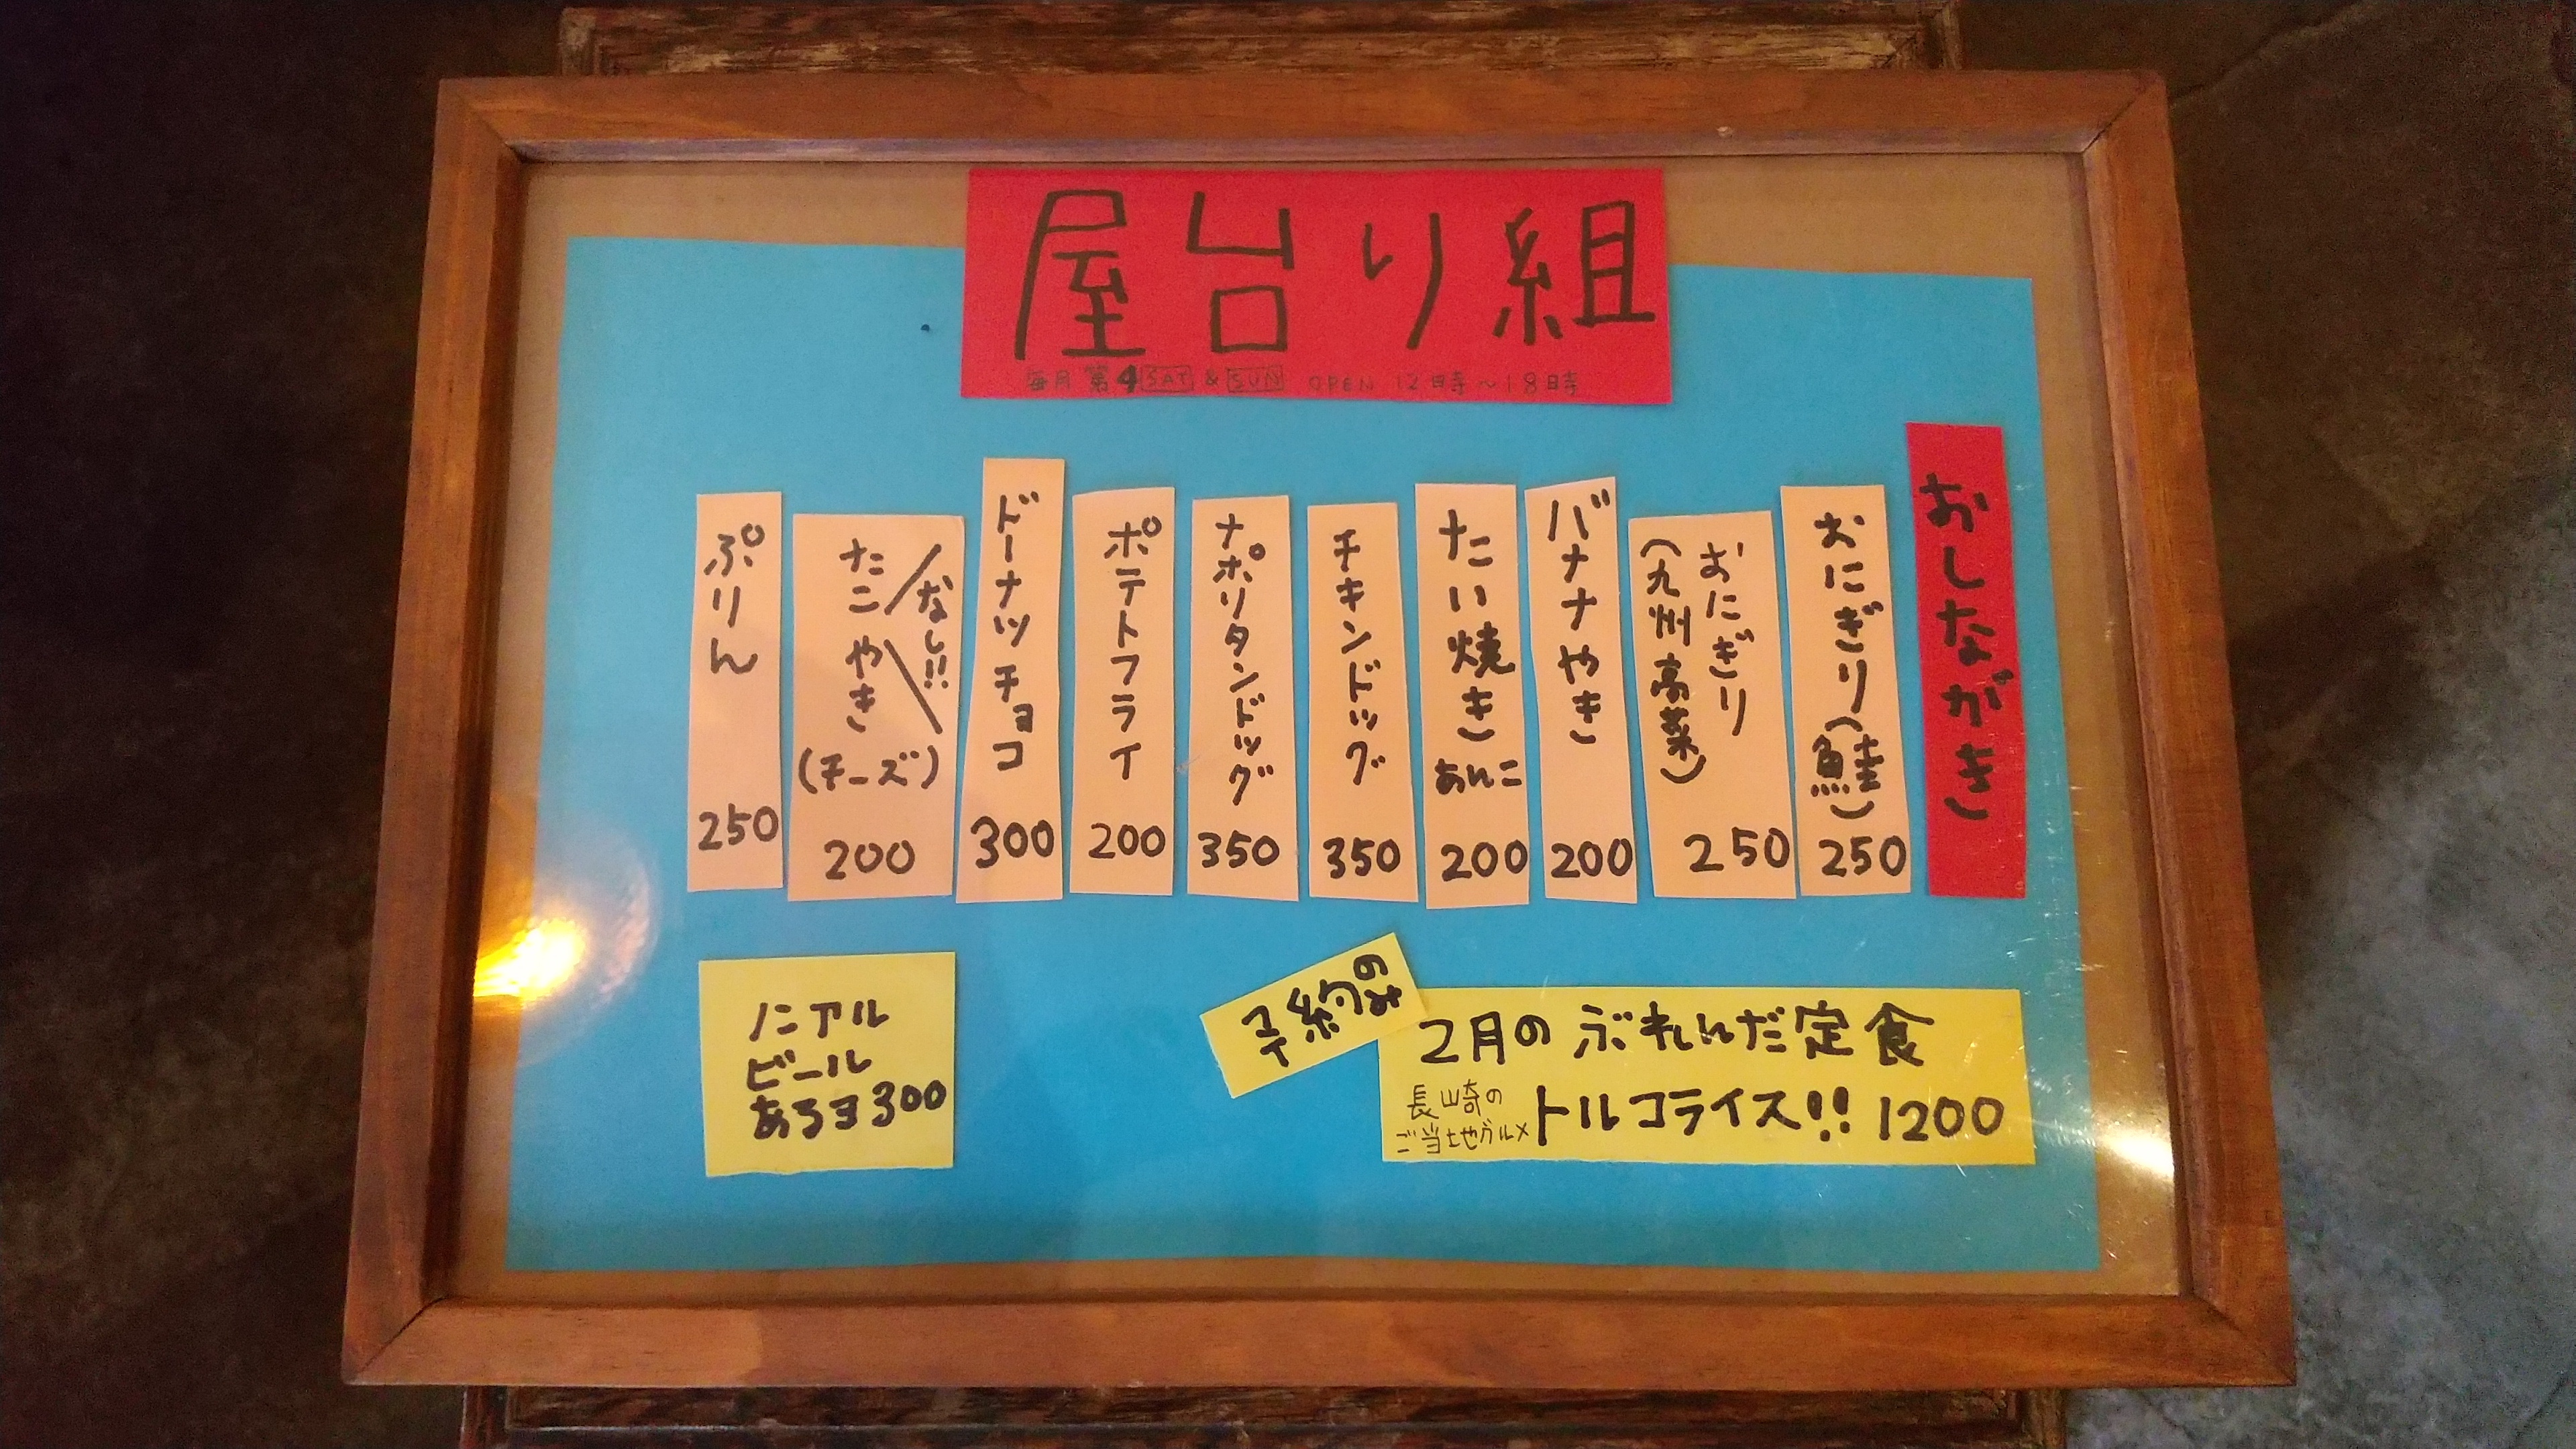 屋台り組
毎月第4SAT&SUN OPEN 12時〜18時
おしながき
おにぎり(鮭) 250
おにぎり
(九州高菜) 250
バナナやき 200
たい焼きあんこ 200
チキンドッグ 350
ナポリタンドッグ 350
ポテトフライ 200
ドーナツチョコ 300
なし!!
たこやき
(チーズ)
200
ぷりん 250
予約のみ
2月のぶれんだ定食
長崎の
ご当地グルメ
トルコライス!! 1200
ノンアル
ビール
あるヨ300